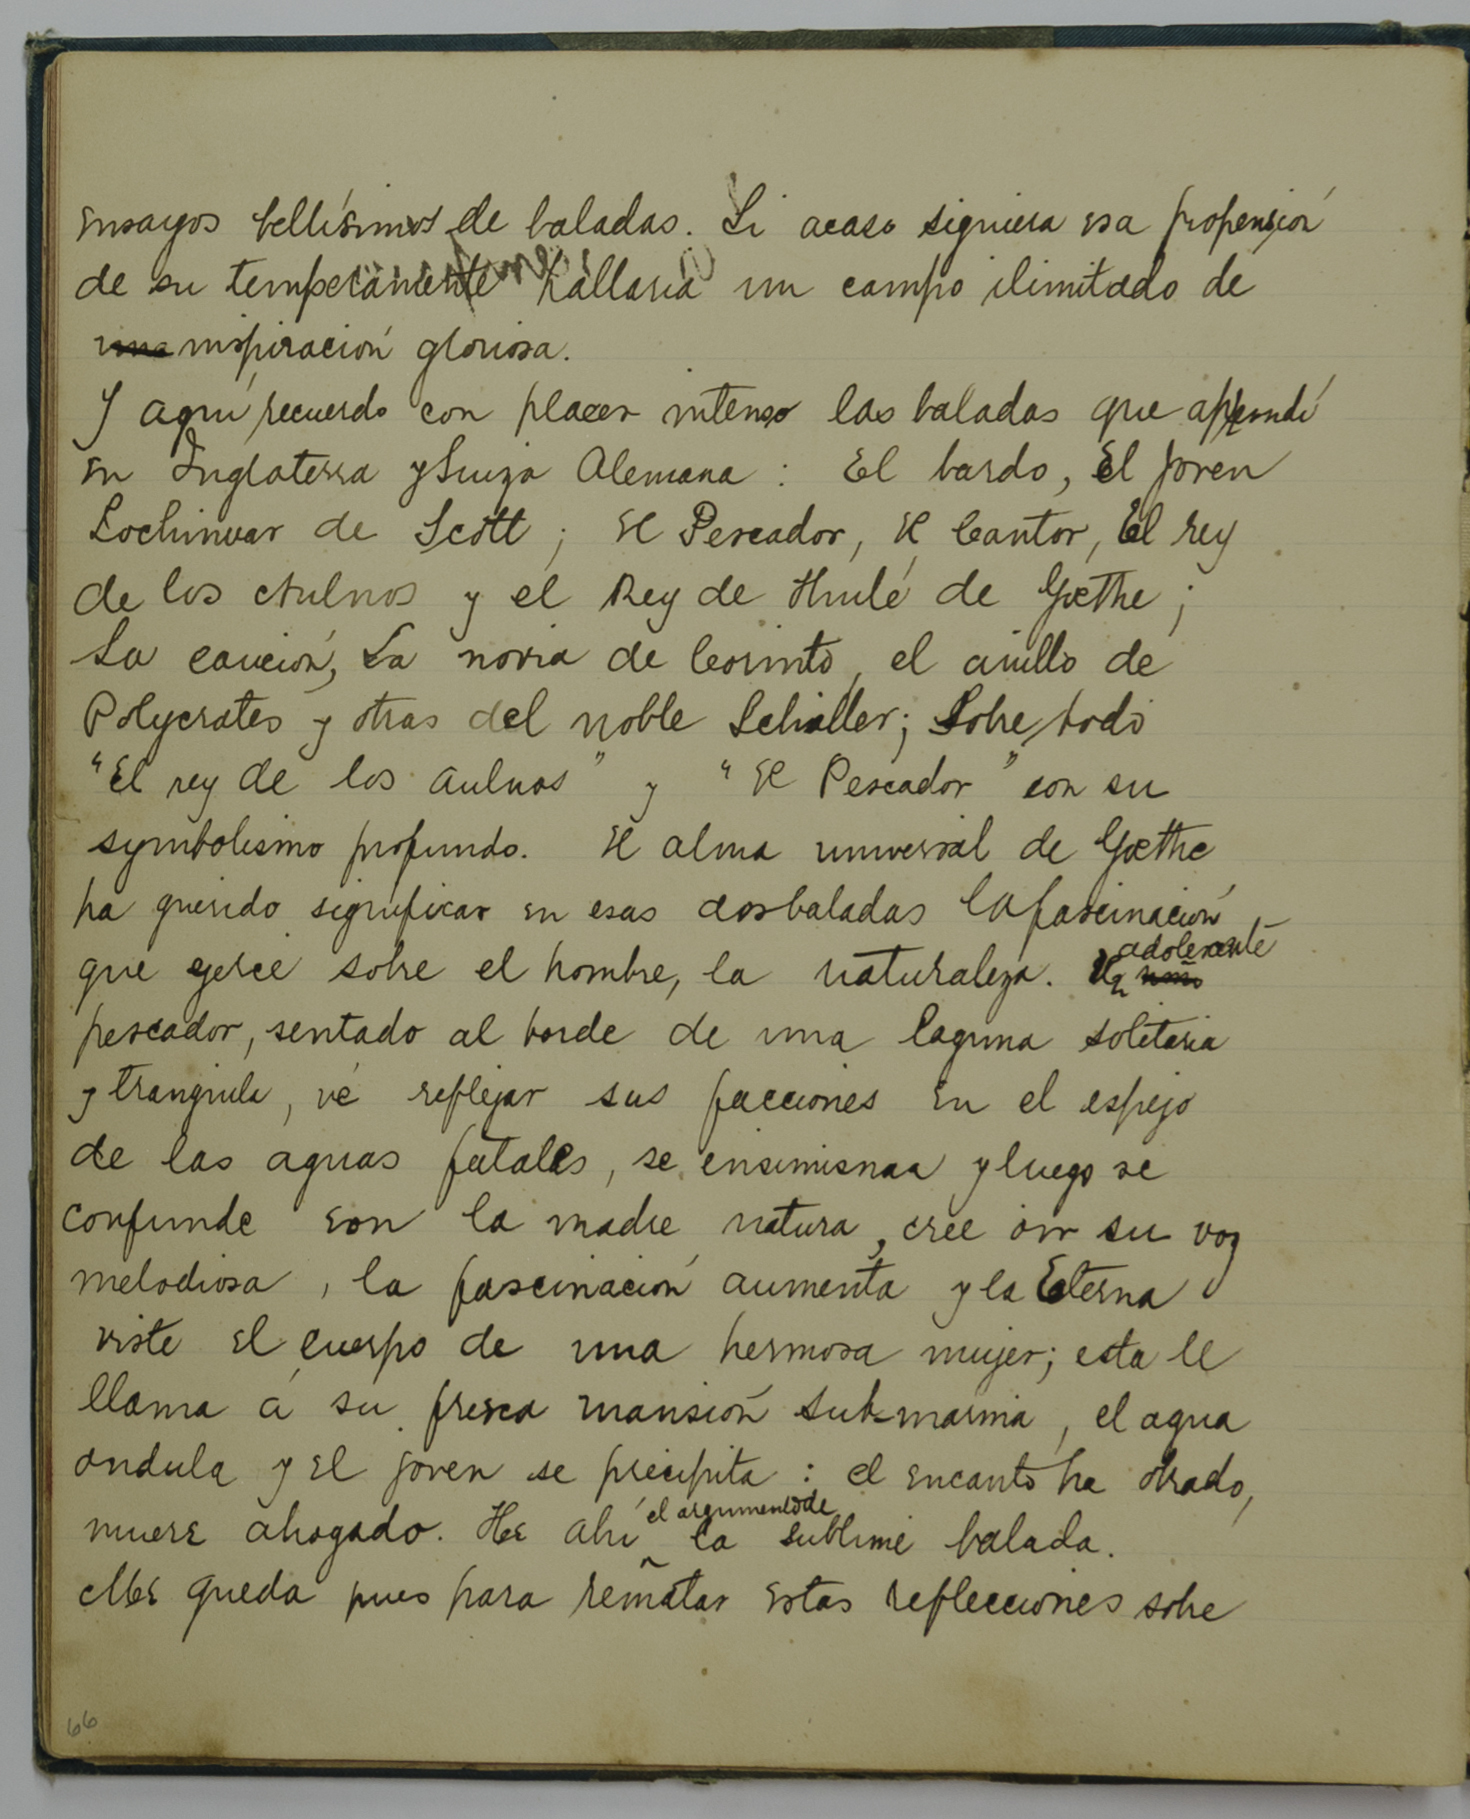 ensayos bellísimos de baladas. Si acaso siguiera esa propensión
de su temperamento hallaria un campo ilimitado de
una inspiración gloriosa.
Y aquí recuerdo con placer intenso las baladas que aprendí
en Inglaterra y Suiza Alemana : El bardo, El joven
Lochinvar de Scott ; El Pescador, El Cantor, El rey
de los Aulnos y el Rey de Thulé de Gœthe ;
La caución, La novia de Corinto, el anillo de
Polycrates y otras del noble Schiller; Sobre todo
"El rey de los Aulnos" y "El Pescador" con su
symbolismo profundo. El alma universal de Gœthe
ha querido significar en esas dos baladas la fascinación
que ejerce sobre el hombre, la naturaleza. Un adolescente
pescador, sentado al borde de una laguna solitaria
y tranquila, vé reflejar sus facciones en el espejo
de las aguas fatales, se ensimisma y luego se
confunde con la madre natura, cree oir su voz
melodiosa, la fascinación aumenta y la Eterna
viste el cuerpo de una hermosa mujer; esta le
llama á su fresca mansión sub-marina, el agua
ondula y el joven se precipita : el encanto ha obrado,
muere ahogado. He ahí el argumento de la sublime balada.
Me queda pues para rematar estas reflecciones sobre
66